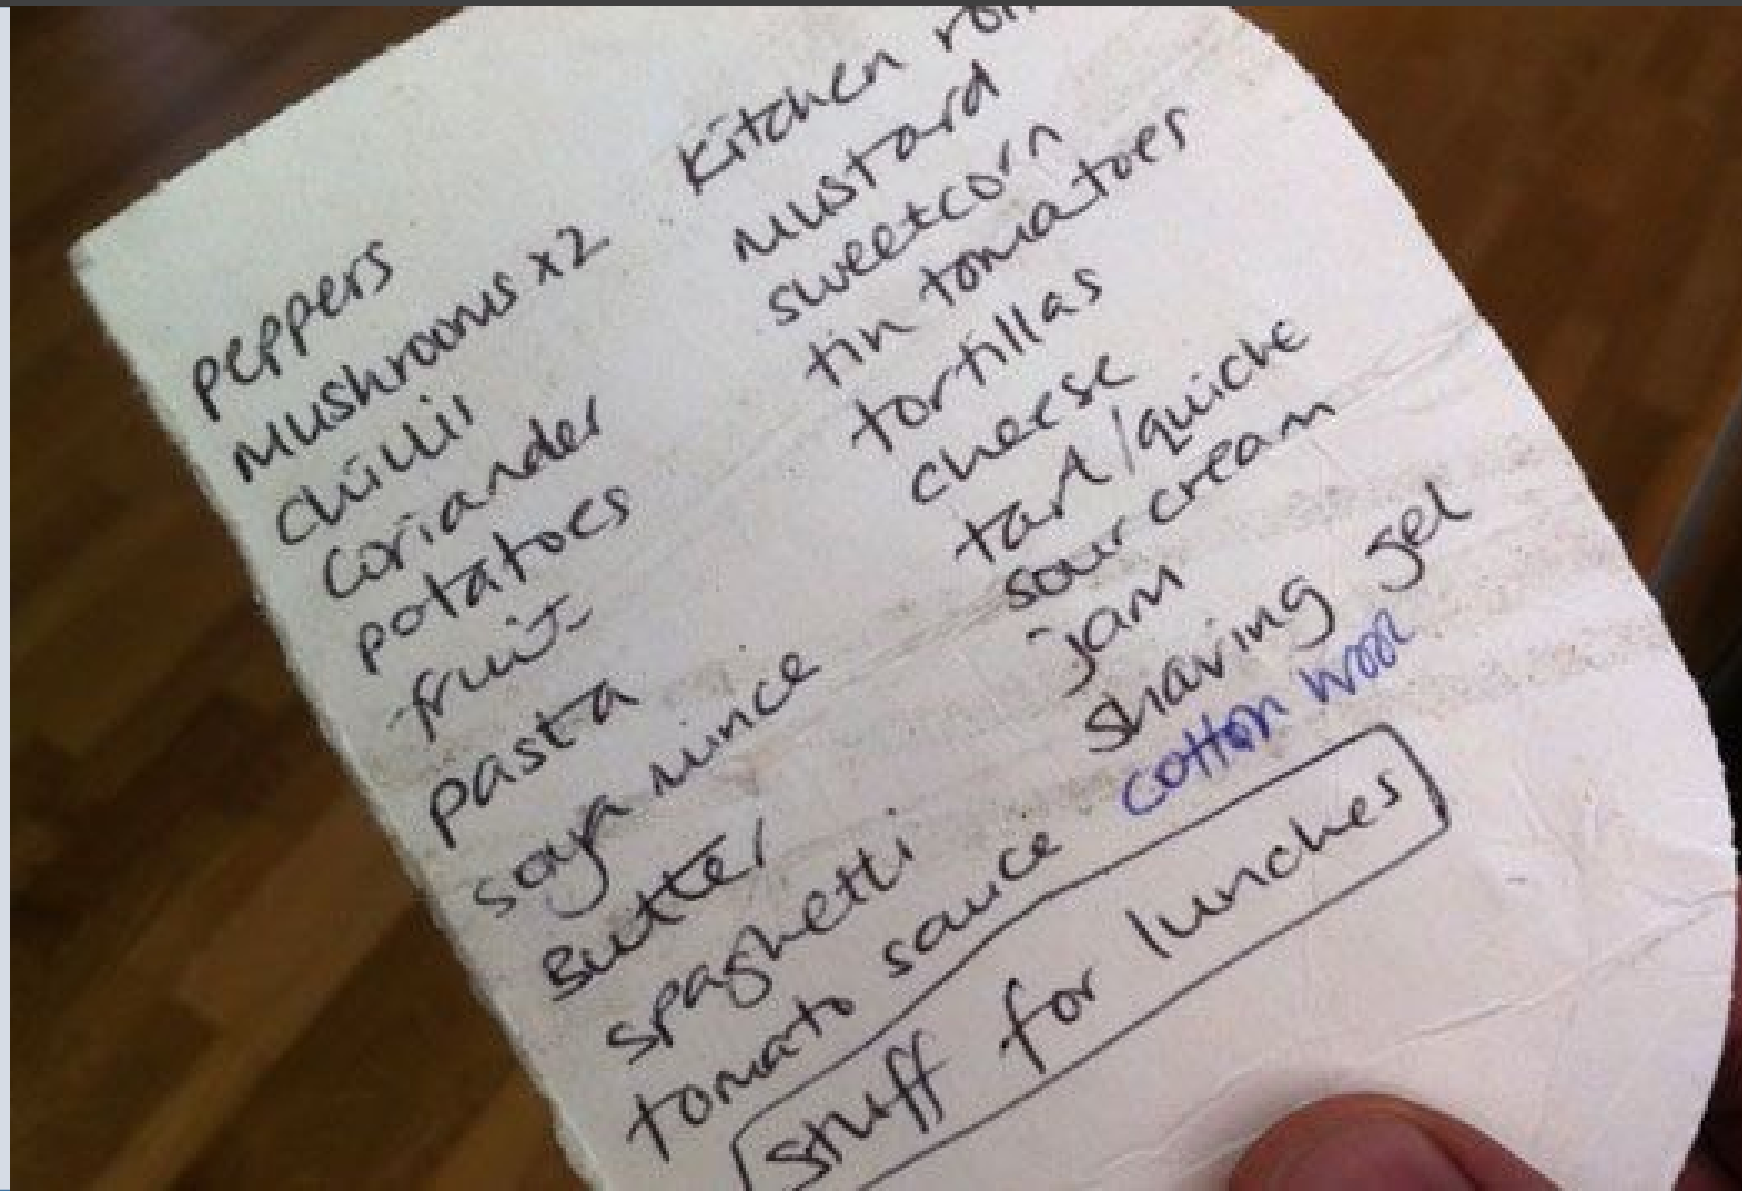 peppers
Mushrooms x2
chillis
Coriander
potatoes
fruit
pasta
soya mince
Butter
spaghetti
tomato sauce
Kitchen roll
Mustard
sweetcorn
tin tomatoes
tortillas
cheese
tart/quiche
sour cream
jam
shaving gel
cotton wool
stuff for lunches